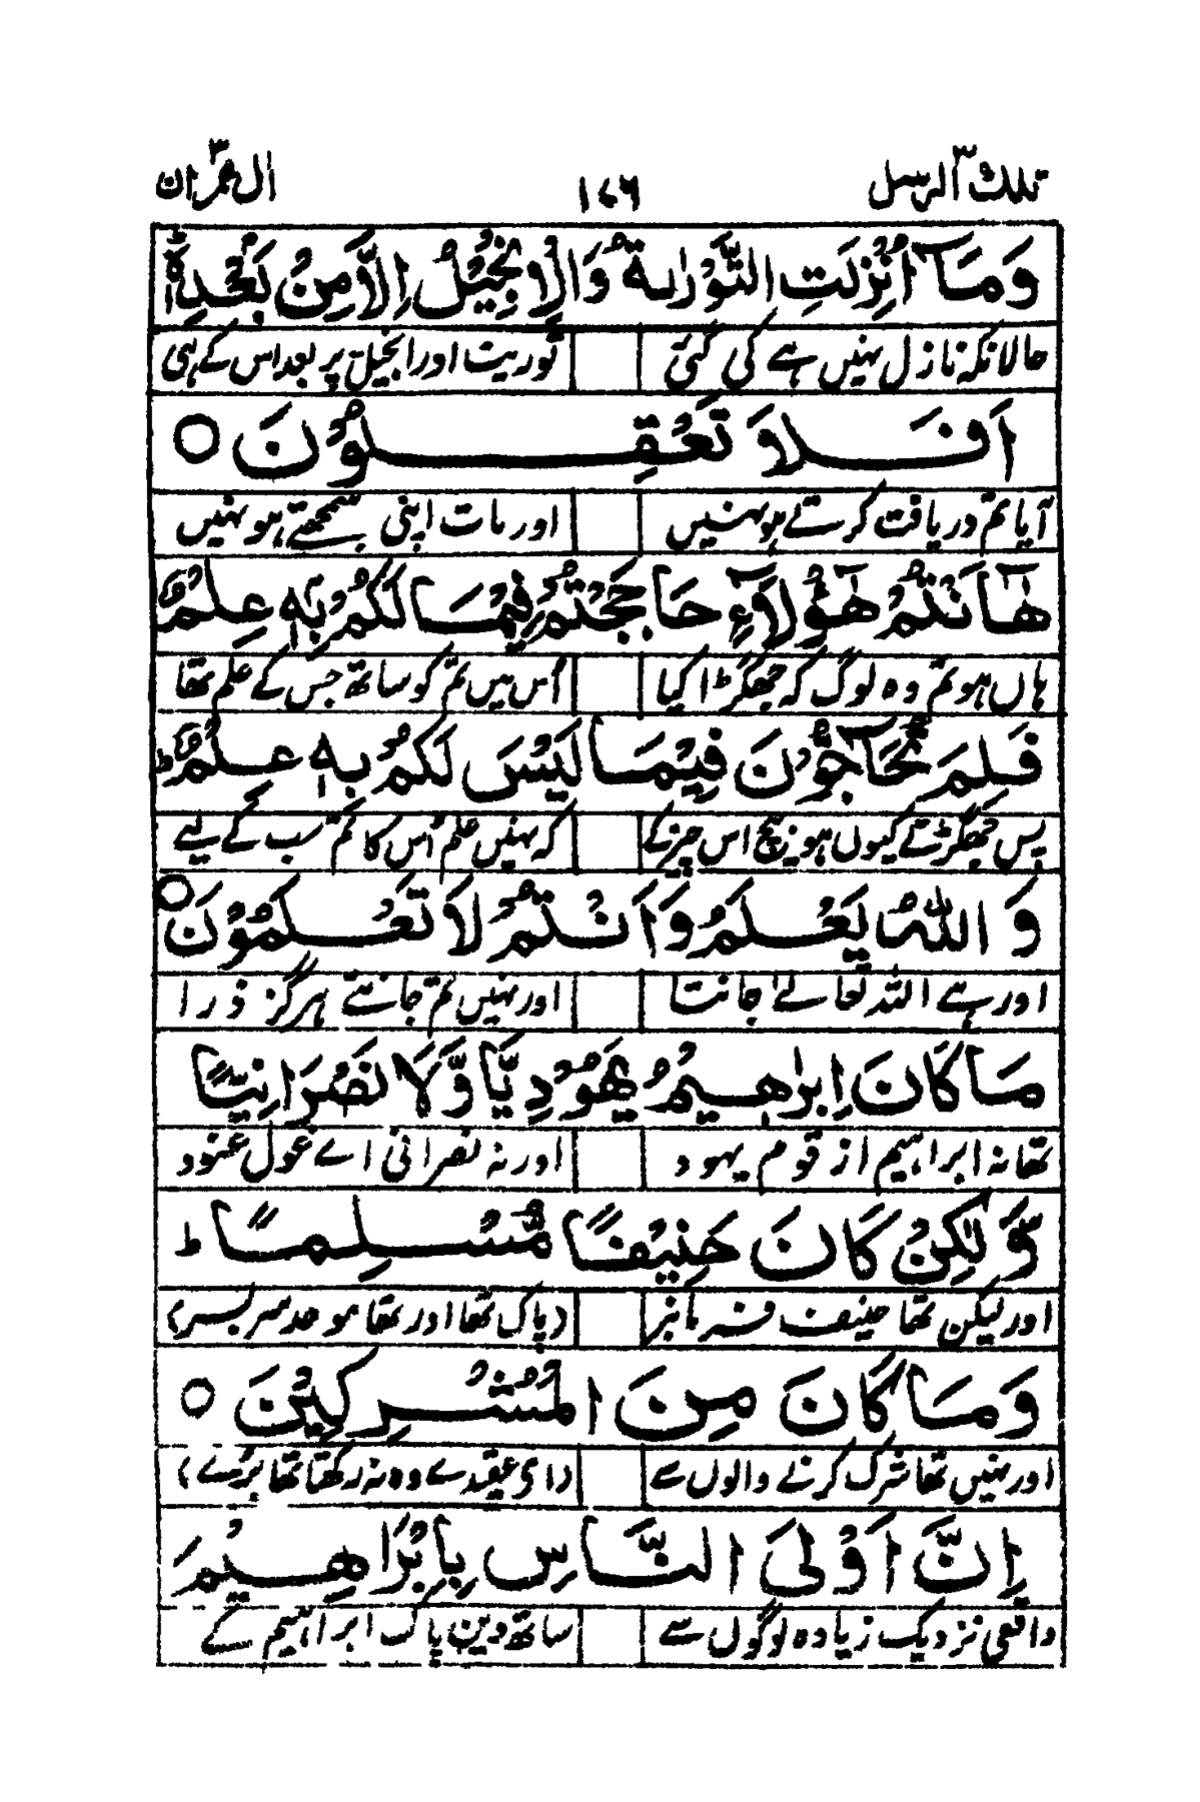 تلك الرسل ٣ ١٧٦ اٰل عمرٰن ٣
وَمَآ اُنْزِلَتِ التَّوْرٰىةُ وَالْاِنْجِيْلُ اِلَّا مِنْۢ بَعْدِهٖ ؕ
حالانکہ نازل نہیں ہے کی گئی توریت اور انجیل پر بعد اس کے ہی
اَفَلَا تَعْقِلُوْنَ ○
آیا تم دریافت کرتے ہو نہیں اور مات اپنی سمجھتے ہو نہیں
هٰٓاَنْتُمْ هٰٓؤُلَآءِ حَاجَجْتُمْ فِيْمَا لَكُمْ بِهٖ عِلْمٌ
ہاں ہو تم وہ لوگ کہ جھگڑا کیا اس میں تم کو ساتھ جس کے علم تھا
فَلِمَ تُحَآجُّوْنَ فِيْمَا لَيْسَ لَكُمْ بِهٖ عِلْمٌ ؕ
پس جھگڑتے کیوں ہو بیچ اس چیز کے کہ نہیں علم اُس کا تم سب کے لیے
وَ اللّٰهُ يَعْلَمُ وَاَنْتُمْ لَا تَعْلَمُوْنَ ○
اور ہے اللہ تعالےٰ جانتا اور نہیں تم جانتے ہرگز ذرا
مَا كَانَ اِبْرٰهِيْمُ يَهُوْدِيًّا وَّلَا نَصْرَانِيًّا
تھا نہ ابراہیم از قوم یہود اور نہ نصرانی اے غول عنود
وَّلٰكِنْ كَانَ حَنِيْفًا مُّسْلِمًا ؕ
اور لیکن تھا حنیف فرمانبر (پاک تھا اور تھا موحد سربسر)
وَمَا كَانَ مِنَ الْمُشْرِكِيْنَ ○
اور نہیں تھا شرک کرنے والوں سے عقیدے وہ نہ رکھتا تھا بڑے)
اِنَّ اَوْلَى النَّاسِ بِاِبْرَاهِيْمَ
واقعی نزدیک زیادہ لوگوں سے ساتھ دین پاک ابراہیم کے